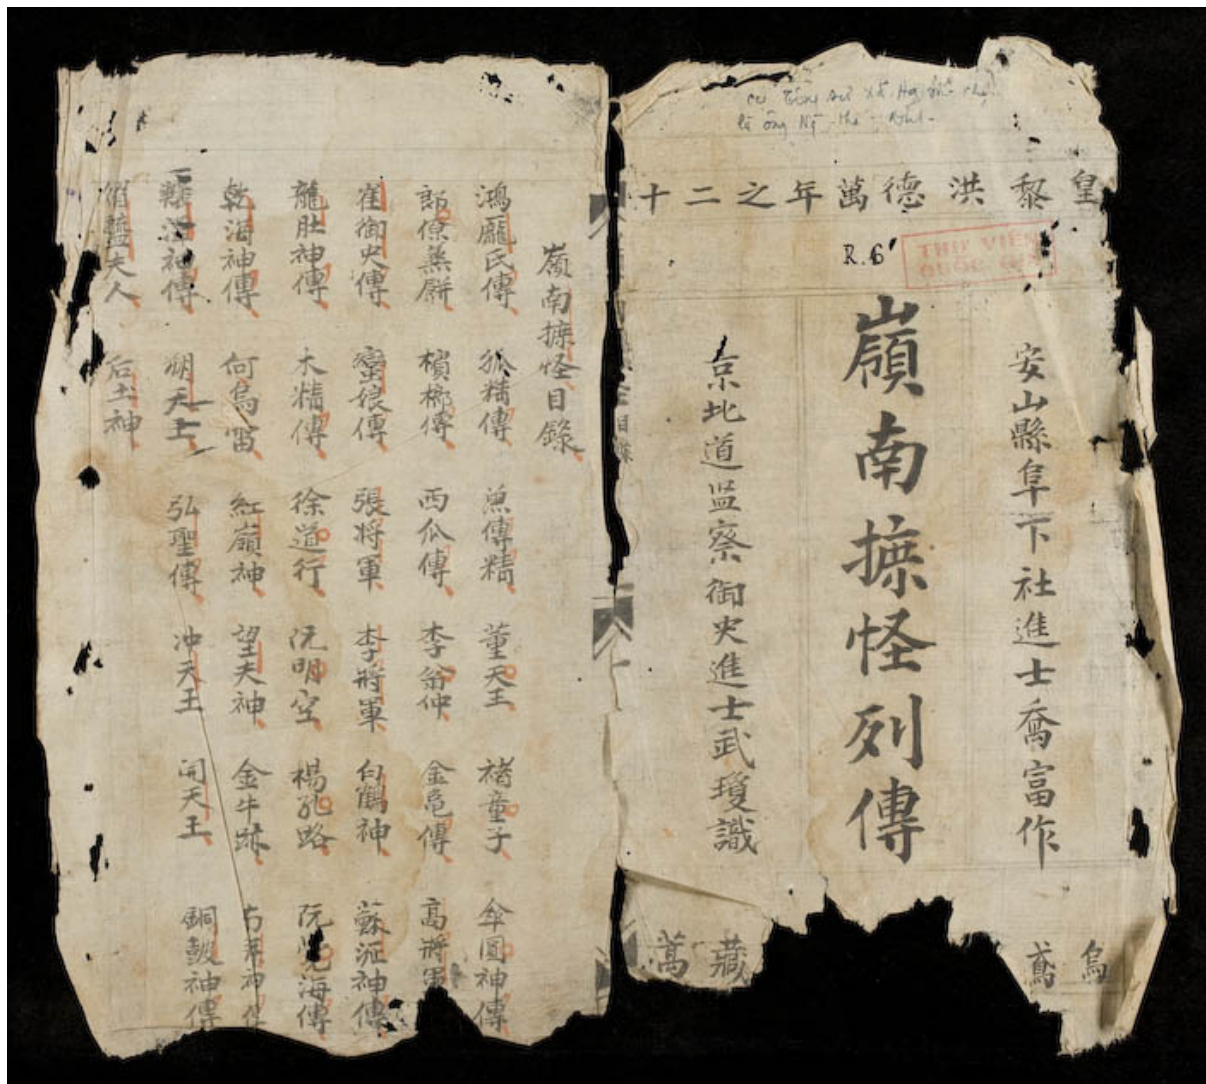 皇黎洪德萬年之二十
R.6
THƯ VIỆN
QUỐC GIA
安山縣阜下社進士喬富作
嶺南摭怪列傳
京北道监察御史進士武瓊識
烏
鳶
藏
萬
嶺南摭怪目錄
鴻龐氏傳 狐精傳 漁傳精 董天王 褚童子 傘圓神傳
郎僚蒸餅 檳榔傳 西瓜傳 李翁仲 金龜傳 高將軍
崔御史傳 蠻娘傳 張将軍 李將軍 白鶴神 蘇瀝神傳
龍肚神傳 木精傳 徐道行 阮明空 楊孔路 阮覺海傳
乾海神傳 何烏雷 紅嶺神 望夫神 金牛跡
神傳 朔天王 弘聖傳 冲天王 開天王 銅鼓神傳
夫人 后土神